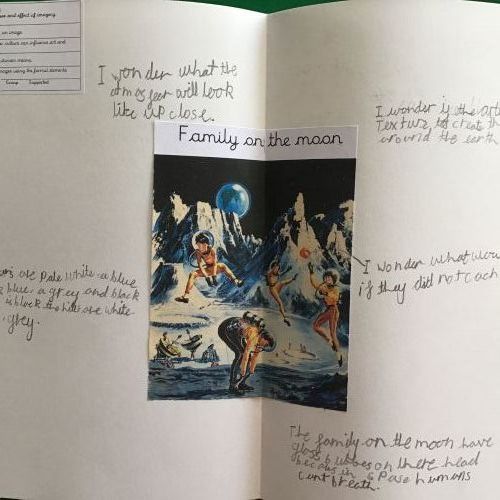 use and effect of imagery
an image
culture can influence art and
images using the formal elements
Group Supported
I wonder what the
atmosfear will look
like up close.
I wonder if the arti
Texture to create th
around the earth
Family on the moon
are pale white - a blue
blue - a grey and black
black the hills are white
grey.
I wonder what wou
if they did not each
The family on the moon have
glass bubbes on there head
becaus in space humans
cant breath.